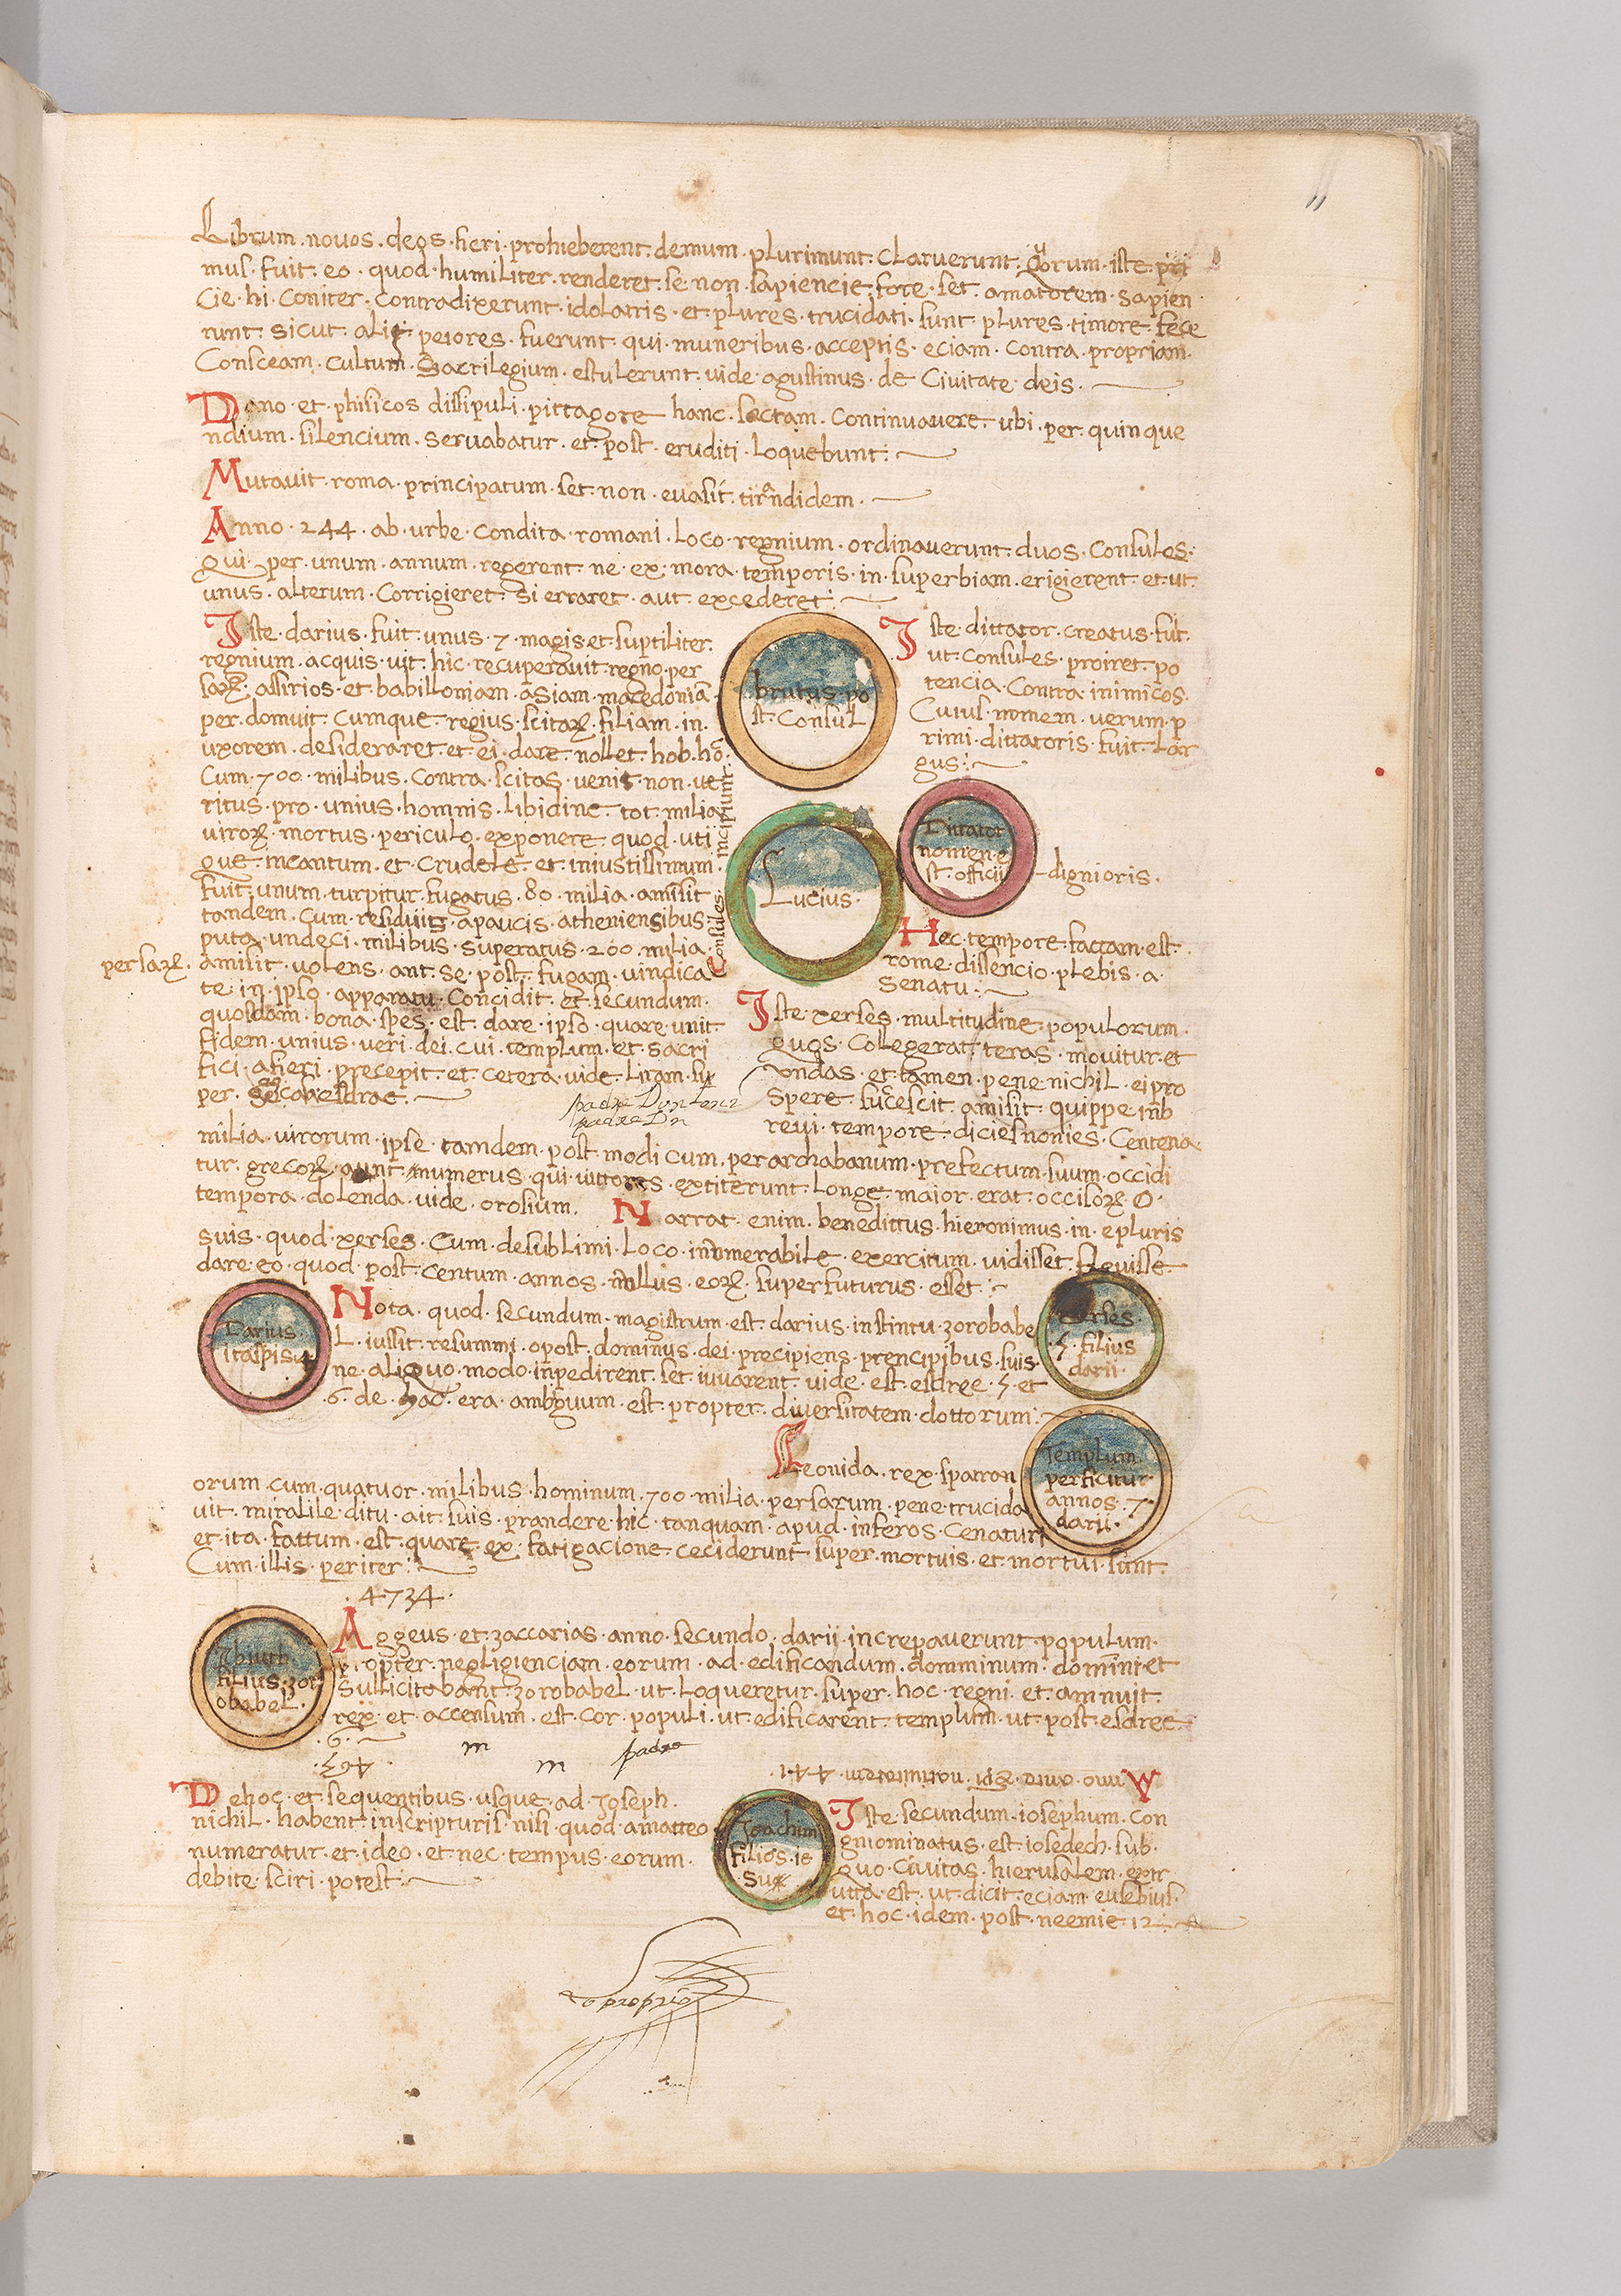 11
Librum . novos . deos . fieri . prohieberent . demum . plurimunt . claruerunt . quorum . iste . pri
mus . fuit . eo . quod . humiliter . renderet . se . non . sapiencie . fore . set . amatorem . sapien
cie . hi . coniter . contradixerunt . idolatris . et . plures . trucidati . sunt . plures . timore . fece
runt . sicut . alie . peiores . fuerunt . qui . muneribus . acceptis . eciam . contra . propriam .
Consceam . cultum . Sacrilegium . estulerunt . uide . agustinus . de Civitate . deis .
Dano . et . phisicos dissipuli . pittagore hanc . sectam . Continuavere . ubi . per . quinque
ndium . silencium . servabatur . et . post . eruditi . loquebunt :
Mutavit . roma . principatum . set . non . euasit . tirandidem .
Anno . 244 . ab . urbe . condita . romani . loco . regnium . ordinaverunt . duos . Consules .
Qui . per . unum . annum . regerent . ne . ex . mora . temporis . in . superbiam . erigierent . et . ut .
unus . alterum . Corrigieret . si erraret . aut . excederet :
Iste . darius . fuit . unus . 7 . magis . et . suptiliter .
regnium . acquis . uit . hic . recuperavit . regno . per
saꝝ . assirios . et . babilloniam . asiam . macedoniā .
per . domuit . Cumque . regius . scitaꝝ . filiam . in .
uxorem . desideraret . et . ei . dare . nollet . hob . hō .
Cum . 700 . milibus . contra . scitas . venit . non . ve
ritus . pro . unius . homnis . libidine . tot . milia
viroꝝ . mortus . periculo . exponere . quod . uti
que . meantum . et . crudele . et . iniustissimum .
fuit . unum . turpitur . fugatus . 80 . milia . amisit
tandem . Cum . residuis . apaucis . atheniensibus
puta . undeci . milibus . superatus . 200 . milia .
persaꝝ . amisit . volens . ant . se . post . fugam . vindica
te . in . ipso . apparatu . Concidit . et . secundum .
quosdam . bona . spes . est . dare . ipso . quare . unit
fidem . unius . veri . dei . cui . templum . et . sacri
fici . afieri . precepit . et . cetera . vide . Liram . su
per .
Consules incipiunt
brutus . po
st . Consul
Iste . dittator . creatus . fut .
ut . consules . proiret . po
tencia . Contra . inimicos .
Cuius . nomem . verum . p
rimi . dittatoris . fuit . Lar
gus :
Lucius .
Dittator
nomen . e
st . officij
dignioris .
Hec . tempore . factam . est .
rome . dissencio . plebis . a .
Senatu :
Iste . xerses . multitudine . populorum .
quos . Collegerat . teras . movitur . et
undas . et . tamen . pene . nichil . ei pro
spere . succescit . amisit . quippe . inb
revi . tempore . diciesnonies . Centena .
padre
padre Dn
milia . virorum . ipse . tamdem . post . modi cum . per archabanum . prefectum . suum . occidi
tur . grecoꝝ . aunt . numerus . qui . vittores . extiterunt . Longe . maior . erat . occisoꝝ . O .
tempora . dolenda . vide . orosium .
Narrat . enim . benedittus . hieronimus . in . epluris
suis . quod . xerses . Cum . desublimi . loco . inumerabile . exercitum . vidisset . flevisse .
dare . eo . quod . post . centum . annos . nullus . eoꝝ . superfuturus . esset :
Darius .
itaspis . 4
Nota . quod . secundum . magistrum . est . darius . instintu . zorobabe
L . iussit . resummi . opost . dominus . dei . precipiens . prencipibus . suis .
ne . aliquo . modo . inpedirent . set . iuvarent . vide . est . esdree . 5 . et
. 6 . de . hac . era . ambiguum . est . propter . diversitatem . dottorum :
. 5 . filius
darii .
Leonida . rex . spatron
orum . cum . quatuor . milibus . hominum . 700 . milia . persarum . pene . trucida
vit . mirabile . ditu . ait . suis . prandere . hic . tanquam . apud . inferos . Cenaturi
et . ita . fattum . est . quare . ex . fatigacione . ceciderunt . super . mortuis . et . mortui . sunt .
Cum . illis . periter :
Templum .
perficitur
annos . 7 .
darii .
. 4734 .
filius . zor
obabel .
Aggeus . et . zaccarias . anno . secundo . darii . increpaverunt . populum .
propter . negligienciam . eorum . ad . edificandum . domminum . domini . et
Sullicitabant . zorobabel . ut . loqueretur . super . hoc . regni . et . amnuit .
rex . et . accensum . est . cor . populi . ut . edificarent . templum . ut . post . esdree .
. 6 .
m
m
padre
. 494 .
Dehoc . et . sequentibus . usque . ad . Joseph .
nichil . habent . inscripturis . nisi . quod . amatteo
numeratur . et . ideo . et . nec . tempus . eorum .
debite . sciri . potest :
Joachim
filios . ie
Su
Iste . secundum . iosephum . con
gniominatus . est . iosedech . sub .
Quo . Civitas . hierusalem . extr
utta . est . ut . dicit . eciam . eusebius .
et . hoc . idem . post . neemie . 12 .
proprio